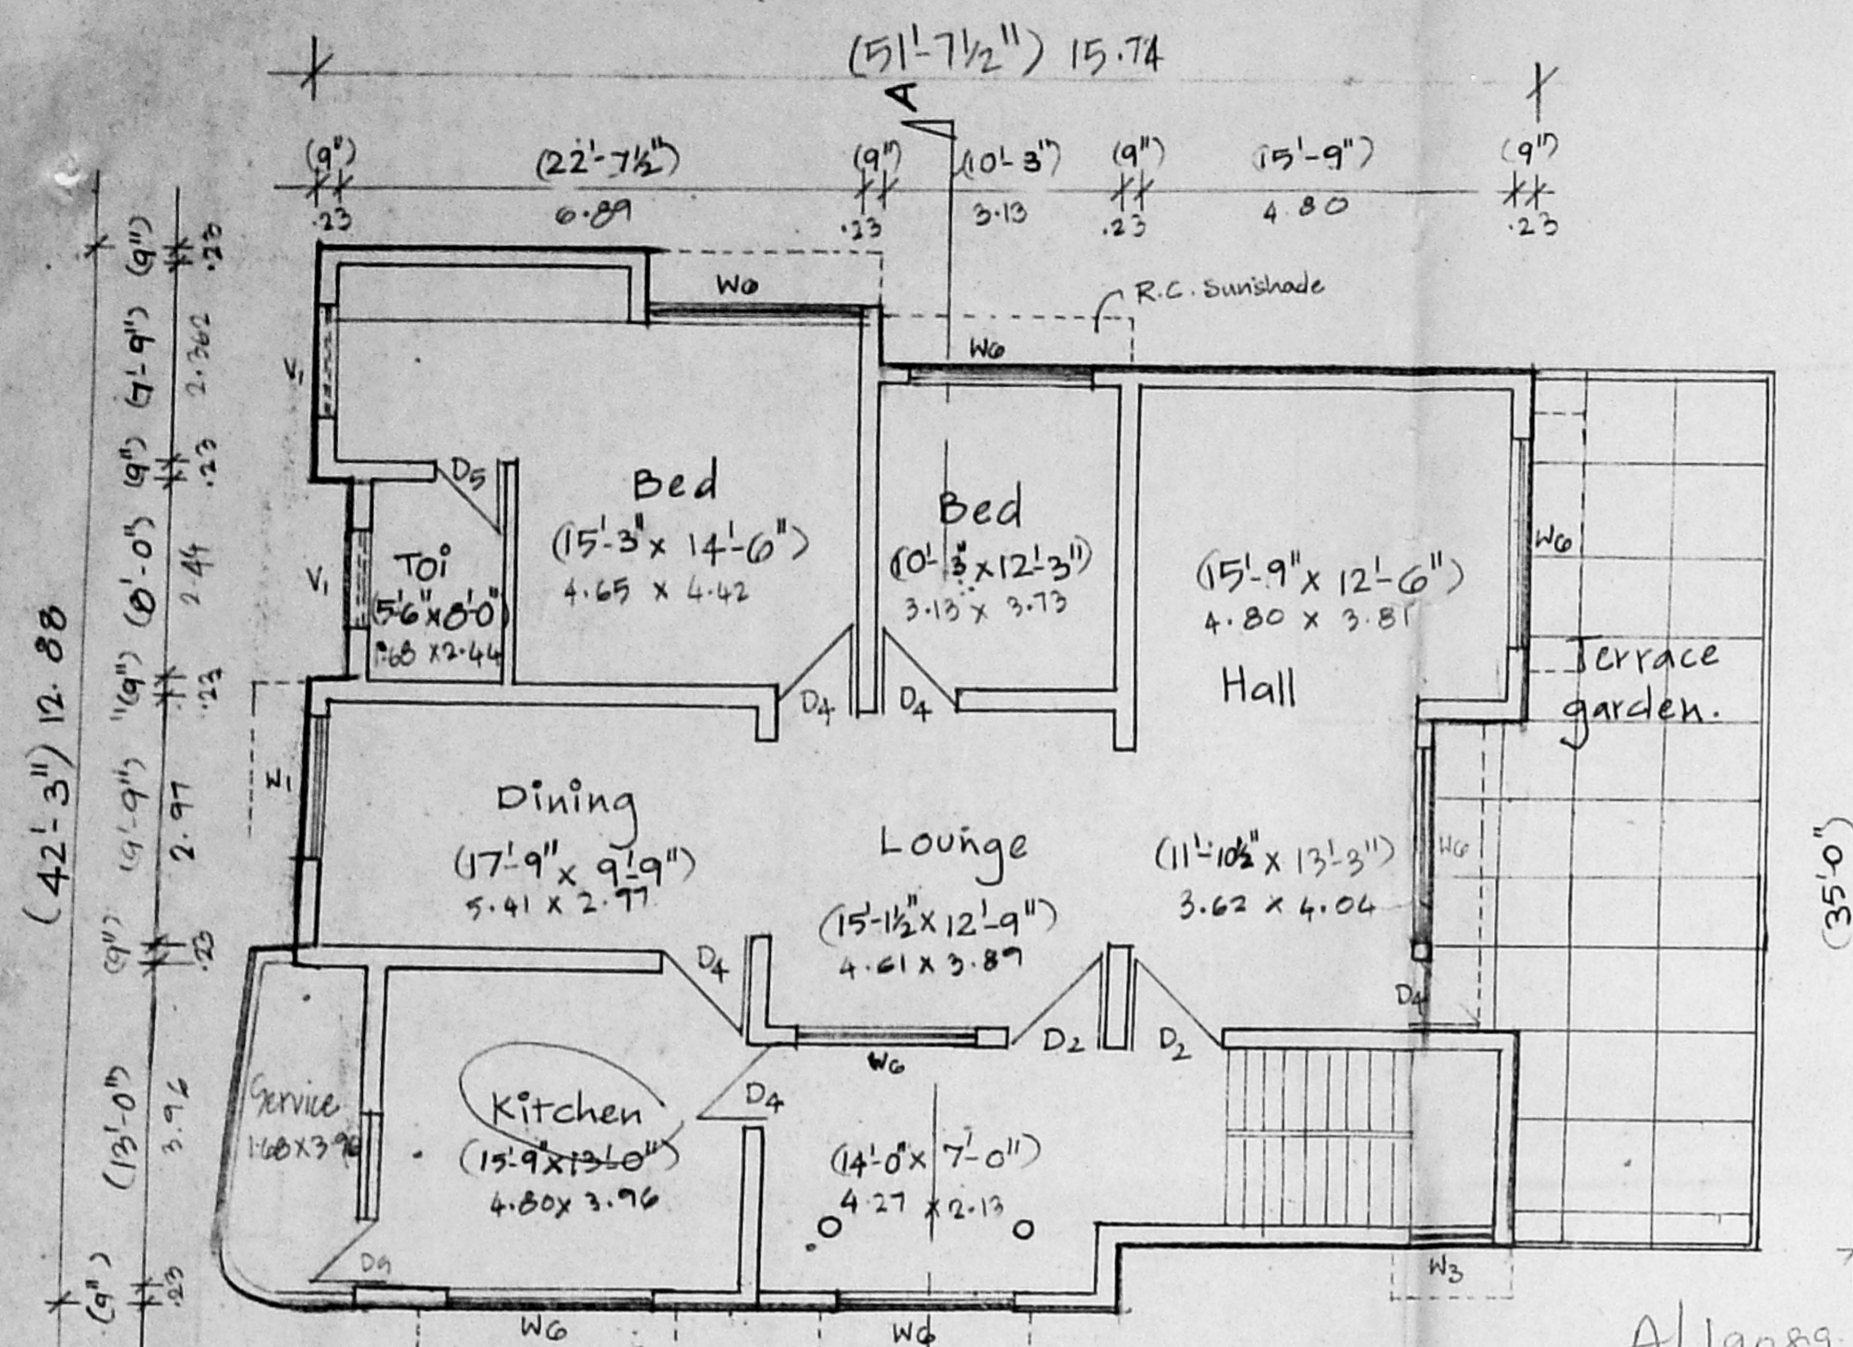 (51'-7½") 15.74
A
(9") (22'-7½") (9") (10'-3") (9") (15'-9") (9")
.23 6.89 .23 3.13 .23 4.80 .23
R.C. Sunshade
W6
W6
(42'-3") 12.88
(9") (7'-9") (9") (8'-0") (9") (9'-9") (9") (13'-0") (9")
.23 2.362 .23 2.44 .23 2.97 .23 3.96 .23
V1
V1
D5
Toi
(5'6"x8'-0")
1.68 x2.44
Bed
(15'-3"x 14'-6")
4.65 x 4.42
Bed
(10'-3"x12'-3")
3.13 x 3.73
(15'-9"x 12'-6")
4.80 x 3.81
Hall
W6
Terrace
garden.
D4
D4
Dining
(17'-9"x 9'-9")
5.41 x 2.97
Lounge
(15'-1½"x 12'-9")
4.61 x 3.89
(11'-10½"x 13'-3")
3.62 x 4.04
W6
(35'-0")
D4
D4
W6
D2
D2
Service
1.68x3.96
Kitchen
(15'-9"x13'-0")
4.80x 3.96
D4
(14'-0"x 7'-0")
4.27 x 2.13
D9
W6
W6
W3